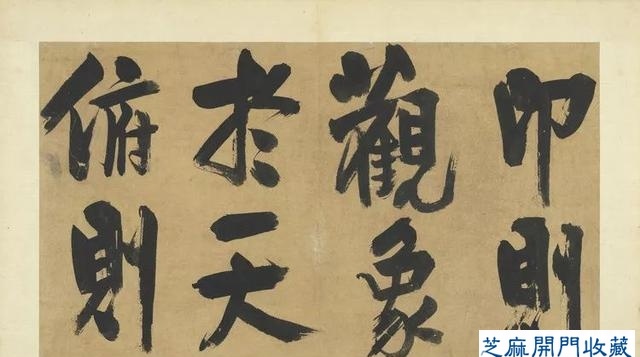 卬則
觀象
於天
俯則
芝麻開門收藏